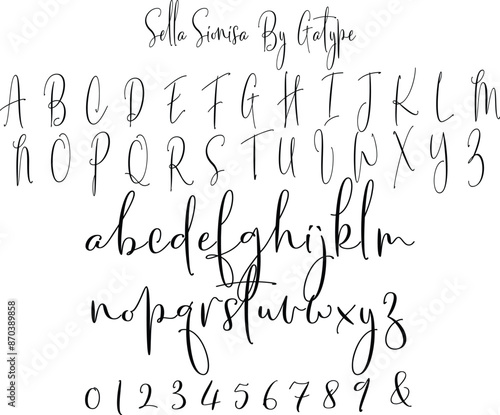 Sella Sionisa By Gatype
A B C D E F G H I J K L M
N O P Q R S T U V W X Y Z
abcdefghijklm
nopqrstuvwxyz
0 1 2 3 4 5 6 7 8 9 &
Adobe Stock | #870389858